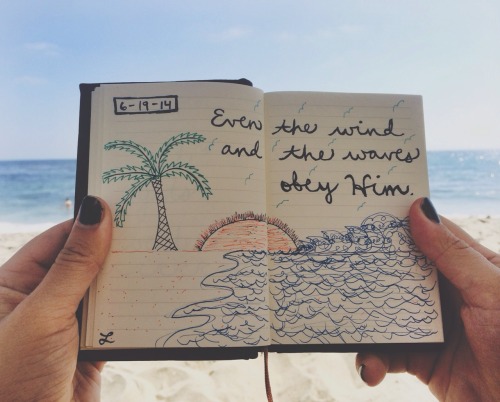 6-19-14
Even the wind
and the waves
obey Him.
L